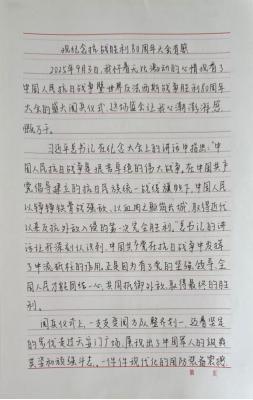 观纪念抗战胜利80周年大会有感
2025年9月3日,我怀着无比激动的心情观看了
中国人民抗日战争暨世界反法西斯战争胜利80周年
大会的盛大阅兵仪式,这场盛会让我心潮澎湃,感
慨万千。
习近平总书记在纪念大会上的讲话中指出:“中
国人民抗日战争是艰苦卓绝的伟大战争。在中国共产
党倡导建立的抗日民族统一战线旗帜下,中国人民
以铮铮铁骨战强敌、以血肉之躯筑长城,取得近代
以来反抗外敌入侵的第一次完全胜利。”总书记的讲
话让我深刻认识到,中国共产党在抗日战争中发挥
了中流砥柱的作用,正是因为有了党的坚强领导,全
国人民才能团结一心,共同抵御外敌,取得最终的胜
利。
阅兵仪式上,一支支受阅方队整齐划一,迈着坚定
的步伐走过天安门广场,展现出了中国军人的飒爽
英姿和顽强斗志。一件件现代化的国防装备震撼
第 页